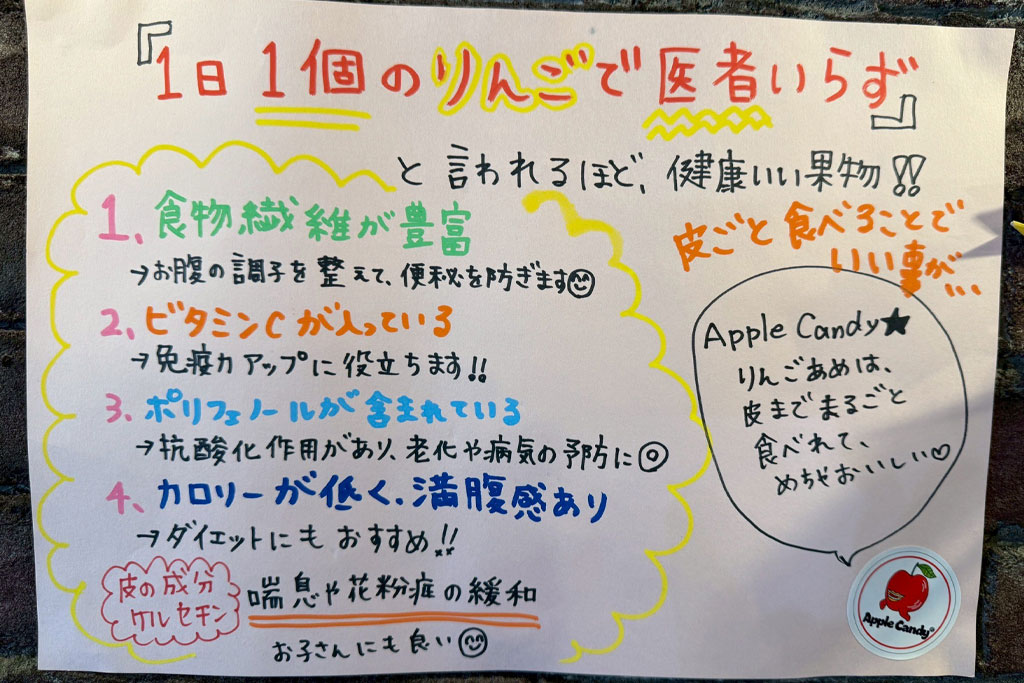 『1日1個のりんごで医者いらず』
と言われるほど、健康いい果物!!
皮ごと食べることで
いい事が…
1、食物繊維が豊富
→お腹の調子を整えて、便秘を防ぎます
2、ビタミンCが入っている
→免疫力アップに役立ちます!!
3、ポリフェノールが含まれている
→抗酸化作用があり、老化や病気の予防に◎
4、カロリーが低く、満腹感あり
→ダイエットにもおすすめ!!
皮の成分
ケルセチン
喘息や花粉症の緩和
お子さんにも良い
Apple Candy★
りんごあめは、
皮までまるごと
食べれて、
めちゃおいしい♡
Apple Candy®